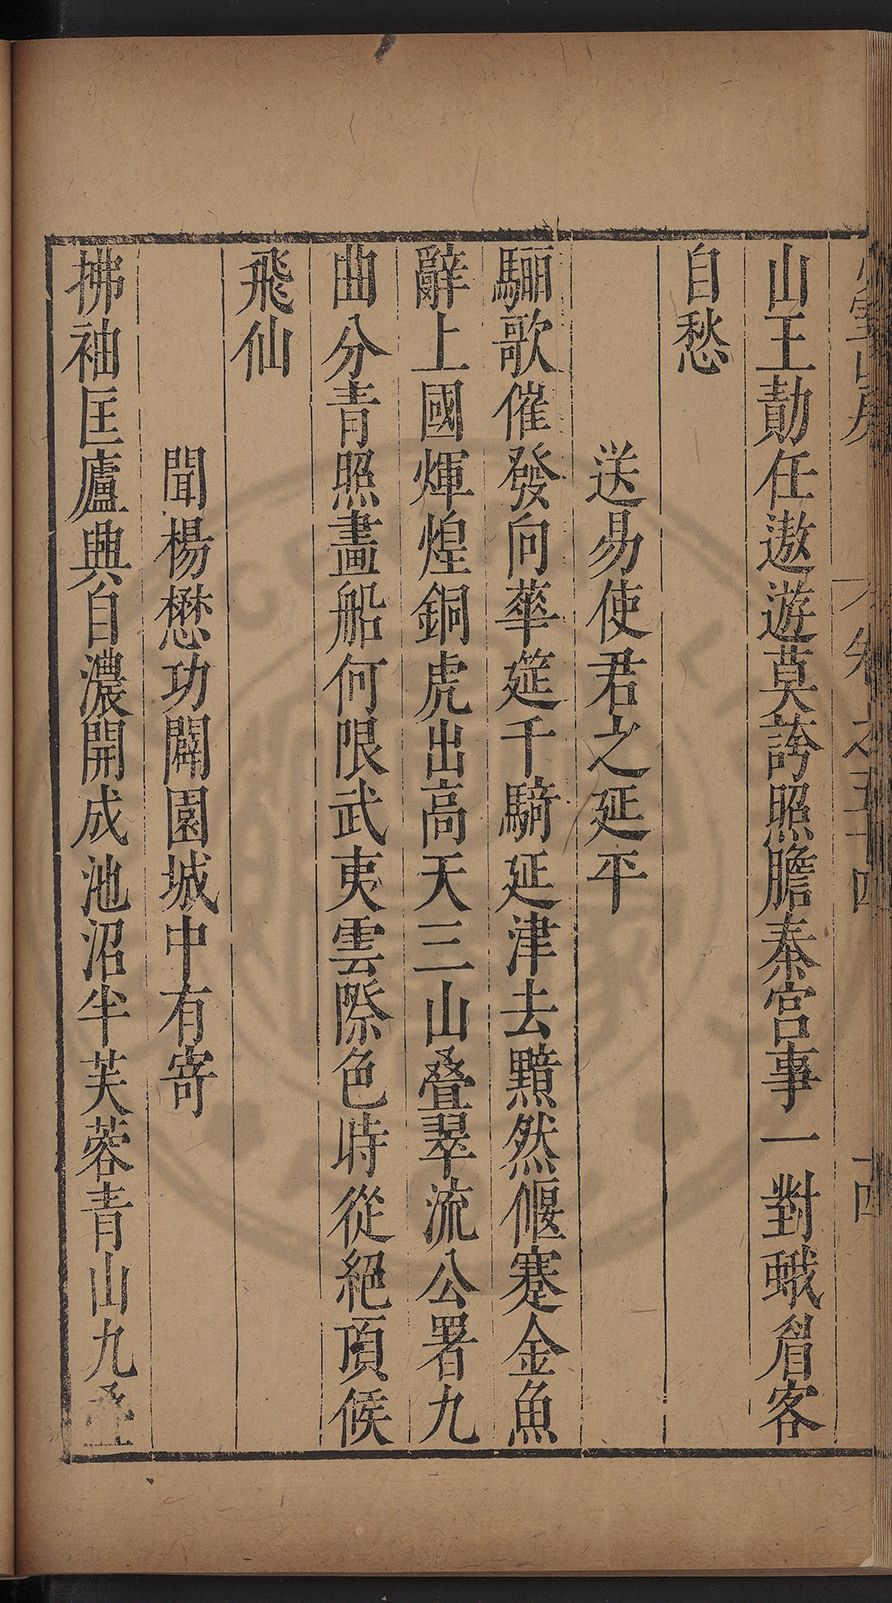 卷之五十四
山王勣任遨遊莫誇照膽秦宮事一對蛾眉客
自愁
送易使君之延平
驪歌催發向華筵千騎延津去黯然偃蹇金魚
辭上國煇煌銅虎出高天三山叠翠流公署九
曲分青照畫船何限武夷雲際色時從絕頂候
飛仙
聞楊懋功闢園城中有寄
拂袖匡廬興自濃開成池沼半芙蓉青山九叠